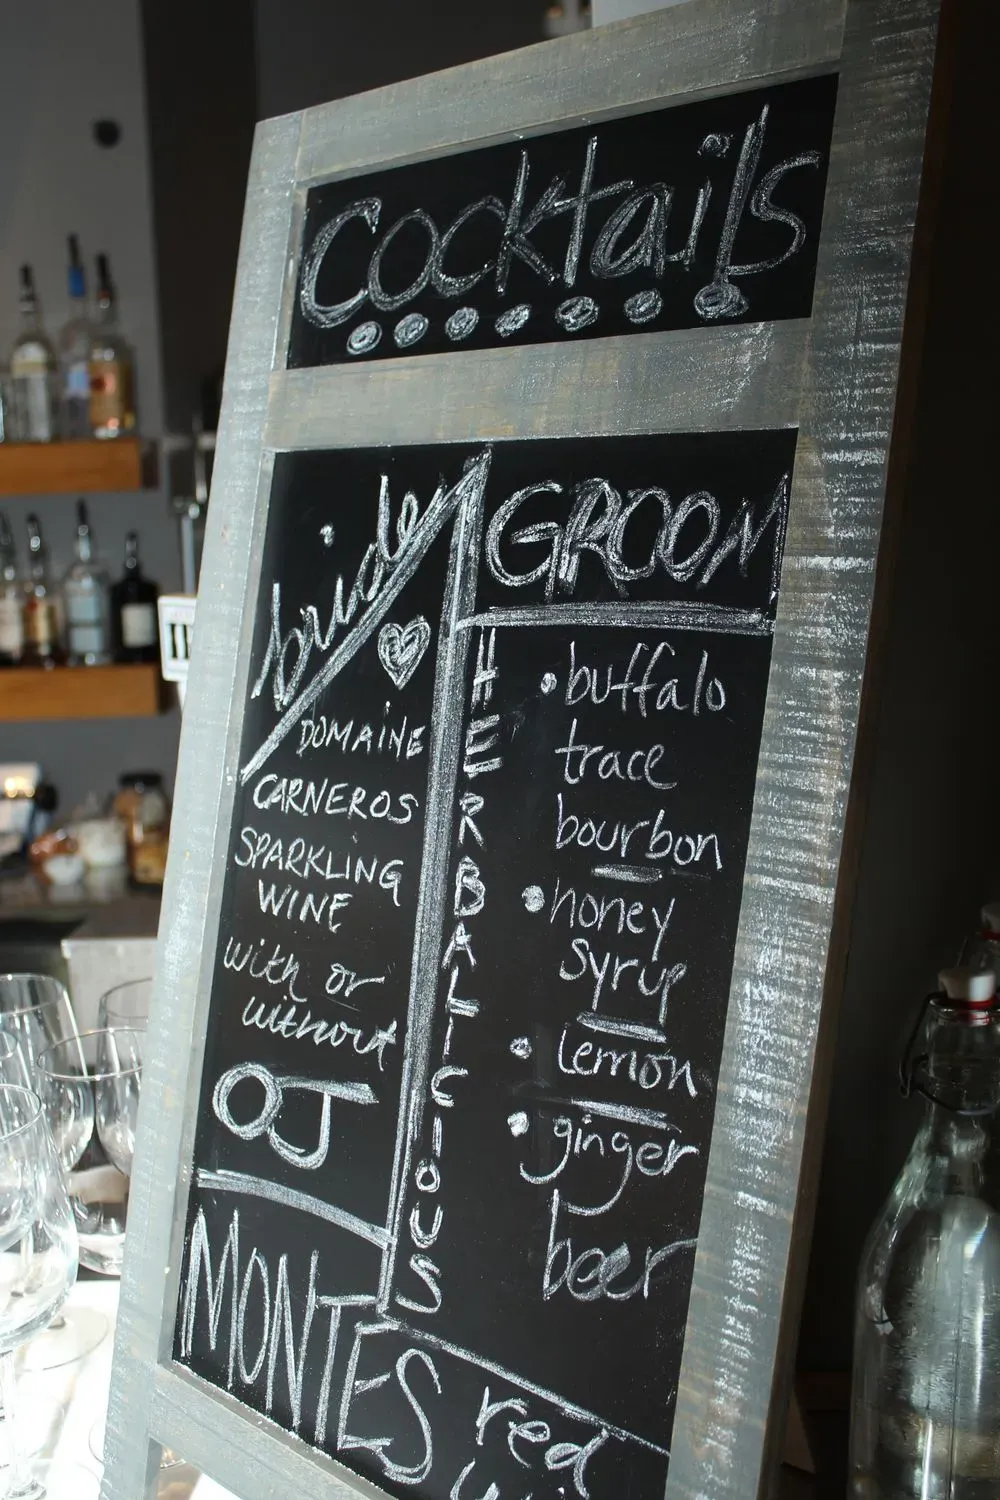 cocktails
bride
DOMAINE
CARNEROS
SPARKLING
WINE
with or
without
OJ
GROOM
HERBALICIOUS
•buffalo
trace
bourbon
•honey
syrup
•lemon
•ginger
beer
MONTES red